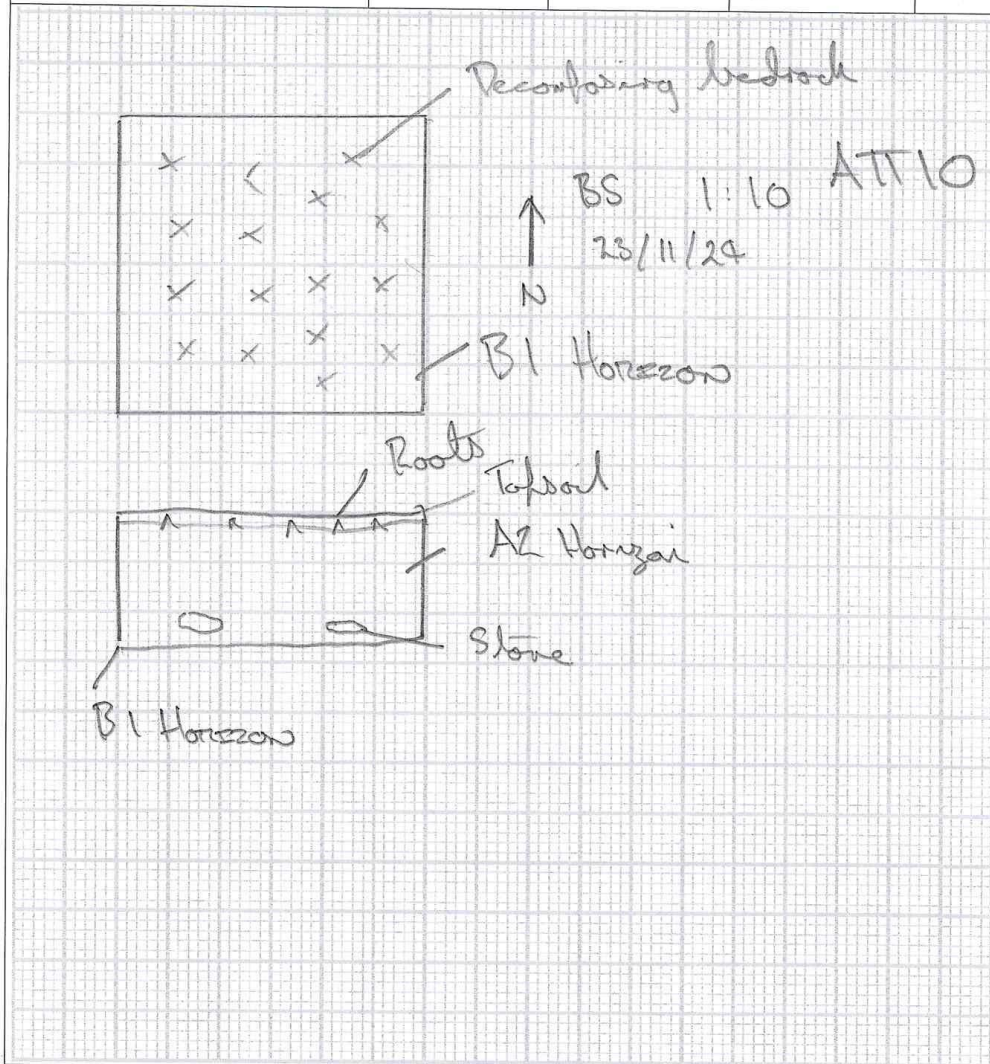 Decomposing bedrock
BS 1:10 ATT10
23/11/24
N
B1 Horizon
Roots
Topsoil
A2 Horizon
Stone
B1 Horizon